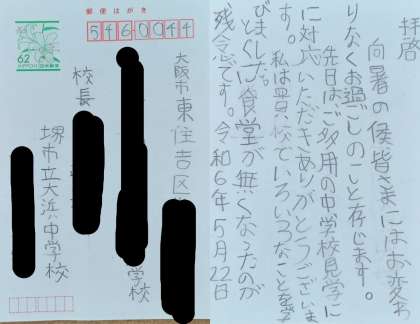 郵便はがき
5460044
62
NIPPON
大阪市東住吉区
学校
校長
堺市立大浜中学校
拝啓
向暑の候皆さまにはお変わ
りなくお過ごしのこと存じます。
先日はご多用の中学校見学に
に対応いただきありがとうございま
す。
私は貴校でいろいろなことを学
びました。
とくに食堂が無くなったのが
残念です。令和6年5月22日